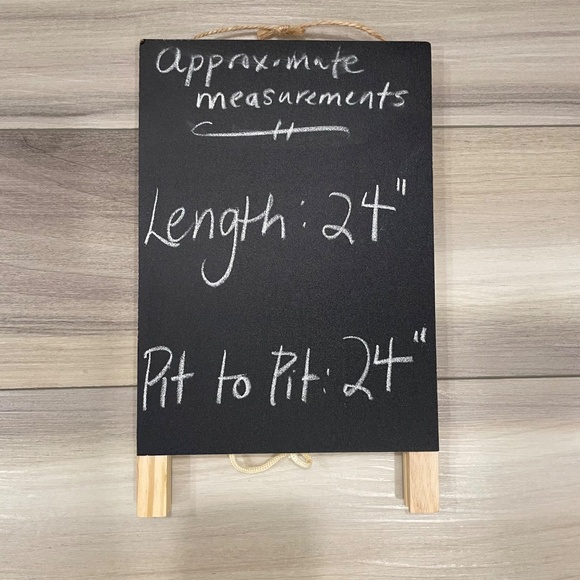 Approximate
measurements
Length: 24"
Pit to Pit: 24"